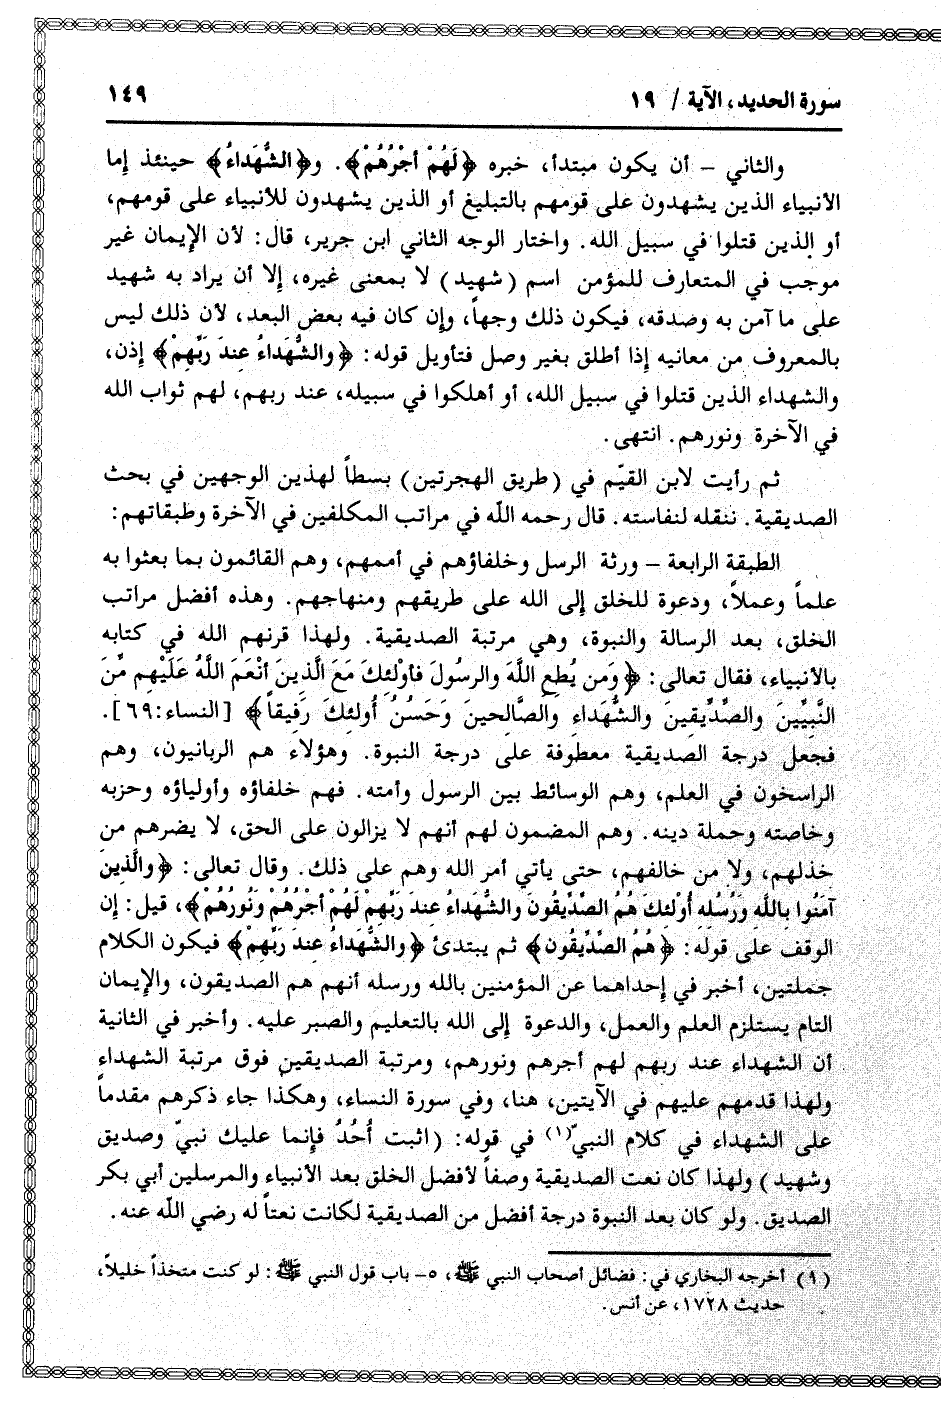 سورة الحديد، الآية / ١٩
١٤٩
والثاني – أن يكون مبتدأ، خبره ﴿لَهُمْ أجْرُهُمْ﴾. و﴿الشُّهَداءُ﴾ حينئذ إما
الأنبياء الذين يشهدون على قومهم بالتبليغ أو الذين يشهدون للأنبياء على قومهم،
أو الذين قتلوا في سبيل الله. واختار الوجه الثاني ابن جرير، قال: لأن الإيمان غير
موجب في المتعارف للمؤمن اسم (شهيد) لا بمعنى غيره، إلا أن يراد به شهيد
على ما آمن به وصدقه، فيكون ذلك وجهاً، وإن كان فيه بعض البعد، لأن ذلك ليس
بالمعروف من معانيه إذا أطلق بغير وصل فتأويل قوله: ﴿والشُّهَداءُ عِندَ رَبِّهِمْ﴾ إذن،
والشهداء الذين قتلوا في سبيل الله، أو أهلكوا في سبيله، عند ربهم، لهم ثواب الله
في الآخرة ونورهم. انتهى.
ثم رأيت لابن القيّم في (طريق الهجرتين) بسطاً لهذين الوجهين في بحث
الصديقية. ننقله لنفاسته. قال رحمه اللّه في مراتب المكلفين في الآخرة وطبقاتهم:
الطبقة الرابعة – ورثة الرسل وخلفاؤهم في أممهم، وهم القائمون بما بعثوا به
علماً وعملاً، ودعوة للخلق إلى الله على طريقهم ومنهاجهم. وهذه أفضل مراتب
الخلق، بعد الرسالة والنبوة، وهي مرتبة الصديقية. ولهذا قرنهم الله في كتابه
بالأنبياء، فقال تعالى: ﴿وَمَن يُطِعِ اللَّهَ والرسُولَ فأوْلئِكَ مَعَ الَّذِينَ أنْعَمَ اللَّهُ عَلَيْهِم مِّنَ
النَّبِيِّينَ والصِّدِّيقِينَ والشُّهَدَاءِ والصَّالحِينَ وَحَسُنَ أُولئِكَ رَفِيقاً﴾ [النساء:٦٩].
فجعل درجة الصديقية معطوفة على درجة النبوة. وهؤلاء هم الربانيون، وهم
الراسخون في العلم، وهم الوسائط بين الرسول وأمته. فهم خلفاؤه وأولياؤه وحزبه
وخاصته وحملة دينه. وهم المضمون لهم أنهم لا يزالون على الحق، لا يضرهم من
خذلهم، ولا من خالفهم، حتى يأتي أمر الله وهم على ذلك. وقال تعالى: ﴿والَّذِينَ
آمَنُوا بِاللَّهِ وَرُسُلِهِ أُوْلئكَ هُمُ الصِّدِّيقُونَ والشُّهَدَاءُ عِندَ رَبِّهِمْ لَهُمْ أجْرُهُمْ ونُورُهُمْ﴾، قيل: إن
الوقف على قوله: ﴿هُمُ الصِّدِّيقُون﴾ ثم يبتدئ ﴿والشُّهَدَاءُ عِندَ رَبِّهِمْ﴾ فيكون الكلام
جملتين، أخبر في إحداهما عن المؤمنين بالله ورسله أنهم هم الصديقون، والإيمان
التام يستلزم العلم والعمل، والدعوة إلى الله بالتعليم والصبر عليه. وأخبر في الثانية
أن الشهداء عند ربهم لهم أجرهم ونورهم، ومرتبة الصديقين فوق مرتبة الشهداء
ولهذا قدمهم عليهم في الآيتين، هنا، وفي سورة النساء، وهكذا جاء ذكرهم مقدماً
على الشهداء في كلام النبيّ(١) في قوله: (اثبت أُحُدُ فإنما عليك نبيّ وصديق
وشهيد) ولهذا كان نعت الصديقية وصفاً لأفضل الخلق بعد الأنبياء والمرسلين أبي بكر
الصديق. ولو كان بعد النبوة درجة أفضل من الصديقية لكانت نعتاً له رضي اللّه عنه.
(١) أخرجه البخاري في: فضائل أصحاب النبي ﷺ، ٥- باب قول النبي ﷺ: لو كنت متخذاً خليلاً،
حديث ١٧٢٨، عن أنس.